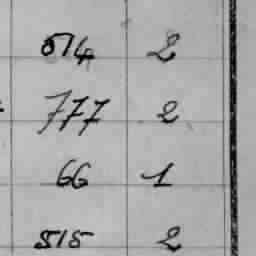 514 2
777 2
66 1
515 2